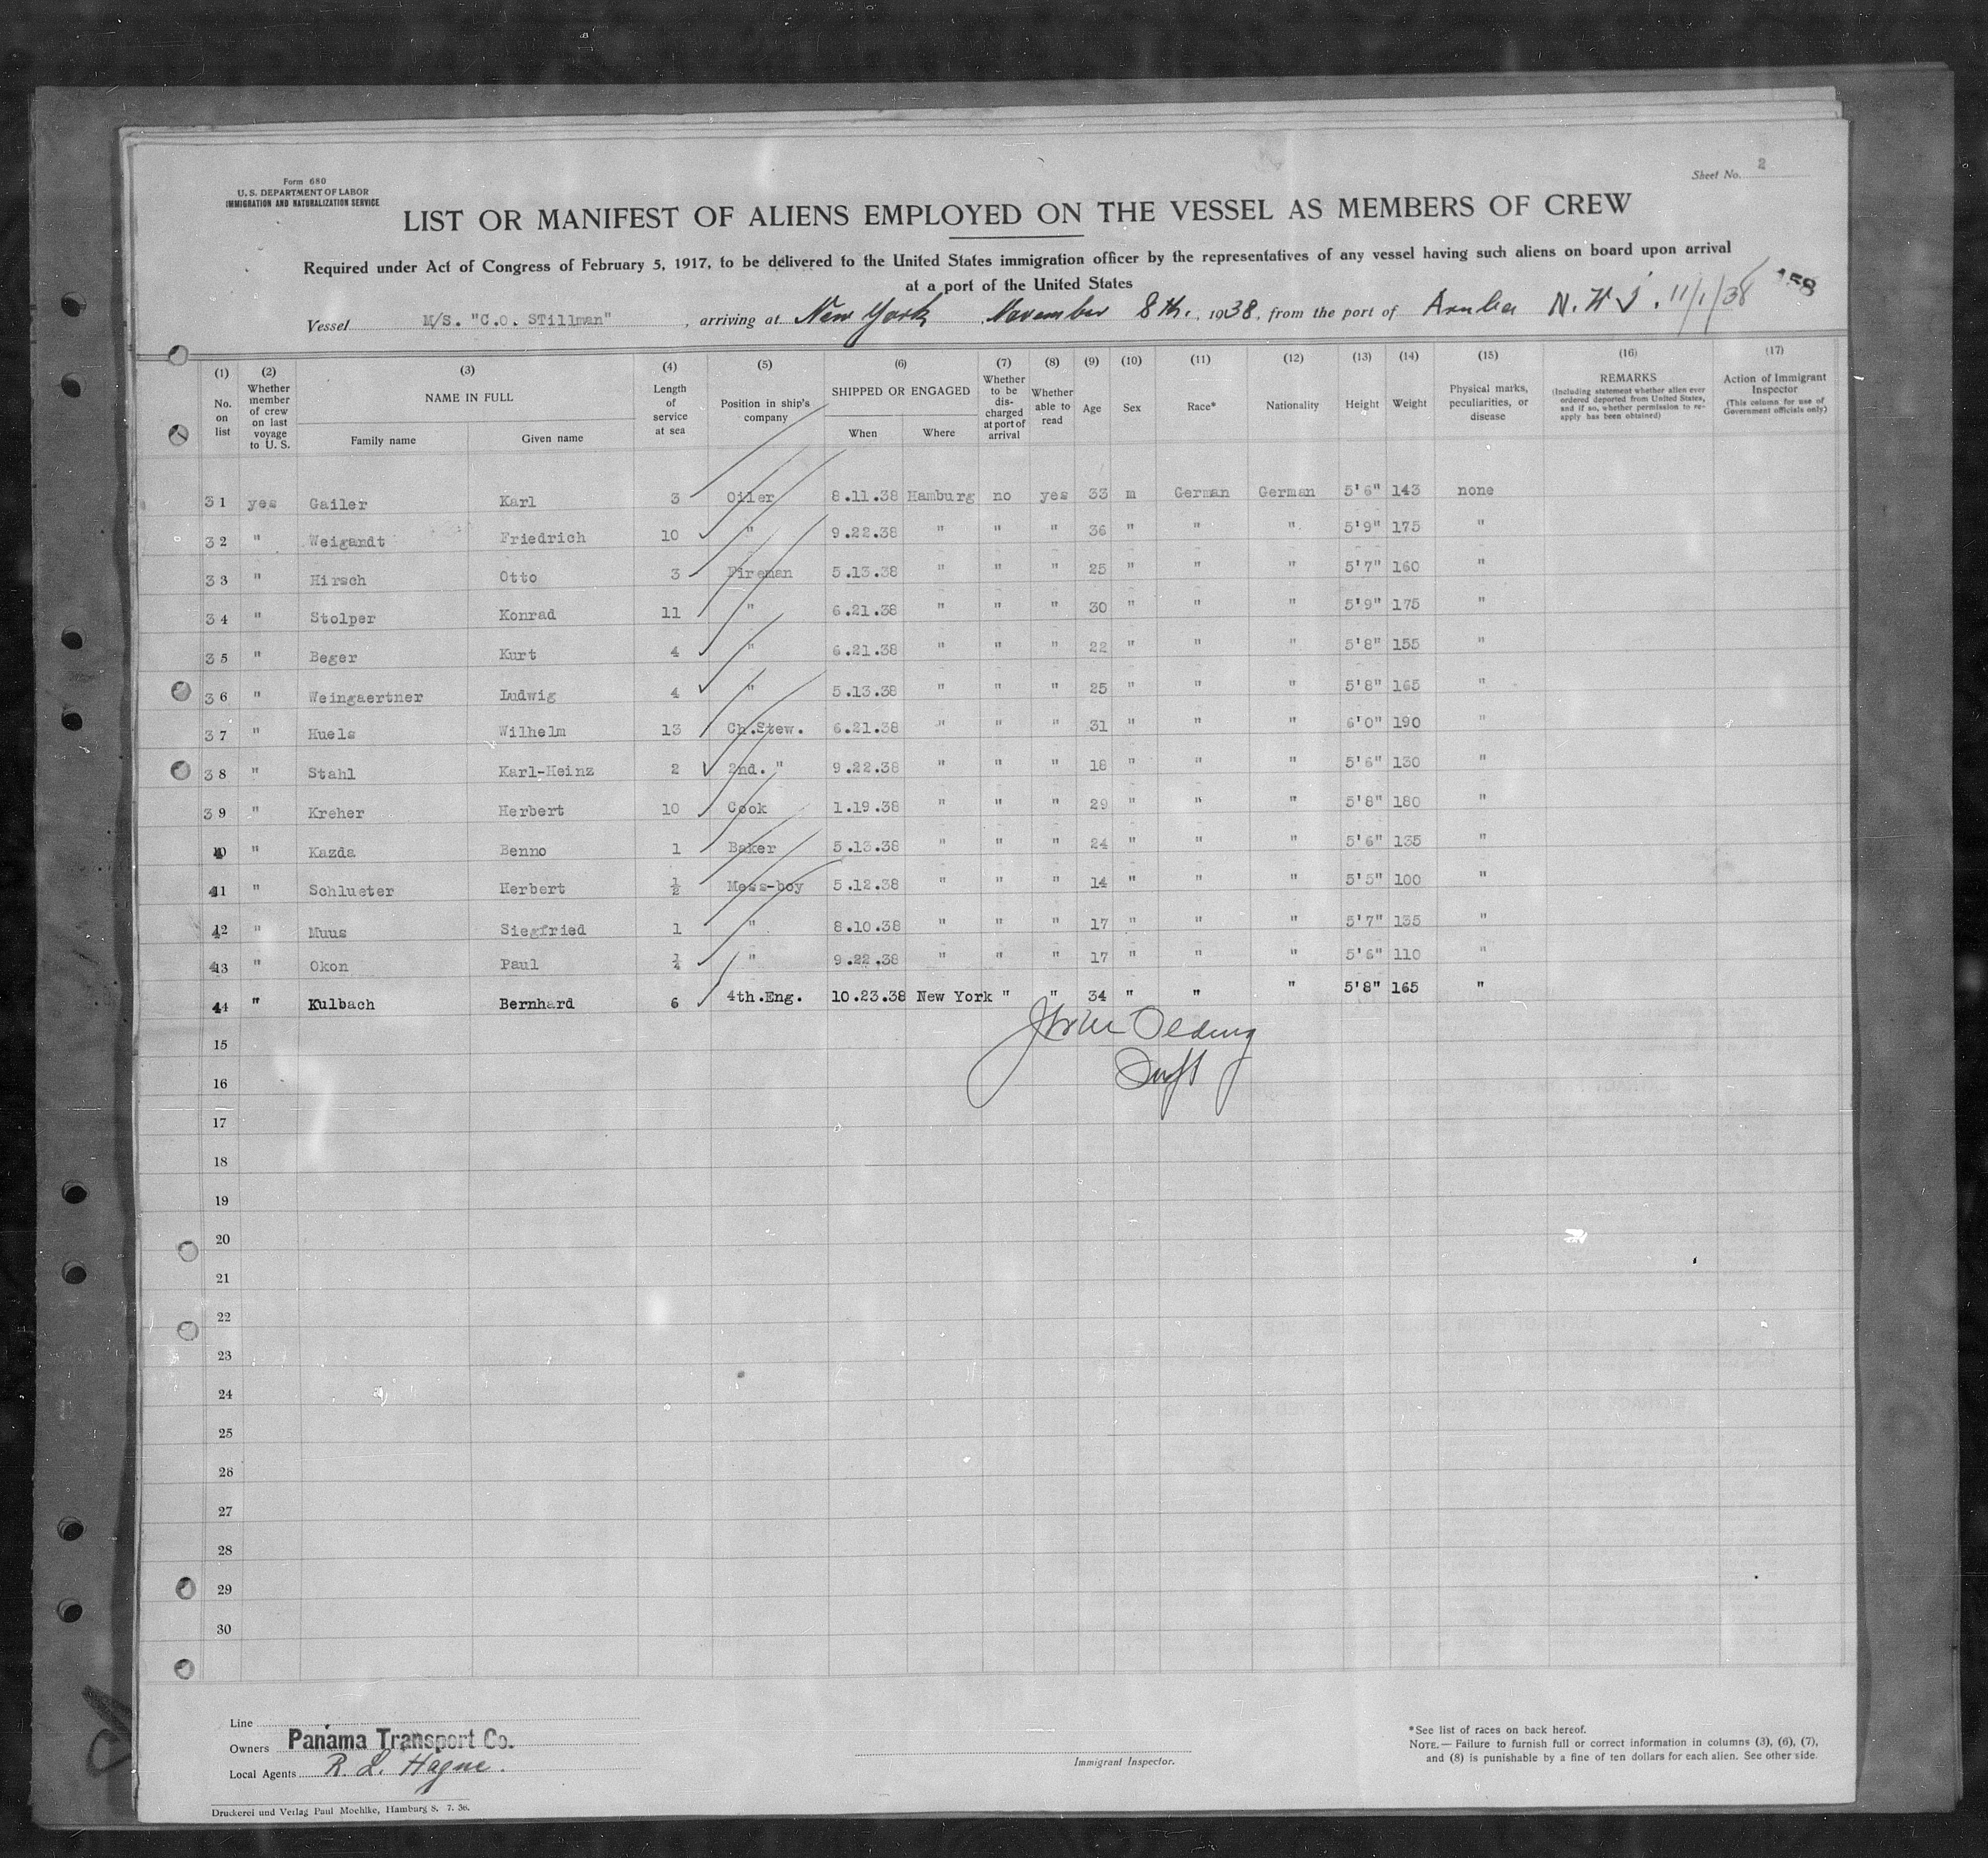 Form 680
U. S. DEPARTMENT OF LABOR
IMMIGRATION AND NATURALIZATION SERVICE
Sheet No. 2
LIST OR MANIFEST OF ALIENS EMPLOYED ON THE VESSEL AS MEMBERS OF CREW
Required under Act of Congress of February 5, 1917, to be delivered to the United States immigration officer by the representatives of any vessel having such aliens on board upon arrival
at a port of the United States
158
Vessel M/S. "C.O. STillman" , arriving at New York November 8th., 1938, from the port of Aruba N.W.I. 11/1/38
(1) (2) (3) (4) (5) (6) (7) (8) (9) (10) (11) (12) (13) (14) (15) (16) (17)
No. on list
Whether member of crew on last voyage to U. S.
NAME IN FULL
Family name Given name
Length of service at sea
Position in ship's company
SHIPPED OR ENGAGED
When Where
Whether to be discharged at port of arrival
Whether able to read
Age
Sex
Race*
Nationality
Height
Weight
Physical marks, peculiarities, or disease
REMARKS
(Including statement whether alien ever ordered deported from United States, and if so, whether permission to re-apply has been obtained)
Action of Immigrant Inspector
(This column for use of Government officials only)
31 yes Gailer Karl 3 Oiler 8.11.38 Hamburg no yes 33 m German German 5'6" 143 none
32 " Weigandt Friedrich 10 " 9.22.38 " " " 36 " " " 5'9" 175 "
33 " Hirsch Otto 3 Fireman 5.13.38 " " " 25 " " " 5'7" 160 "
34 " Stolper Konrad 11 " 6.21.38 " " " 30 " " " 5'9" 175 "
35 " Beger Kurt 4 " 6.21.38 " " " 22 " " " 5'8" 155 "
36 " Weingaertner Ludwig 4 " 5.13.38 " " " 25 " " " 5'8" 165 "
37 " Huels Wilhelm 13 Ch.Stew. 6.21.38 " " " 31 " " " 6'0" 190 "
38 " Stahl Karl-Heinz 2 2nd. " 9.22.38 " " " 18 " " " 5'6" 130 "
39 " Kreher Herbert 10 Cook 1.19.38 " " " 29 " " " 5'8" 180 "
40 " Kazda Benno 1 Baker 5.13.38 " " " 24 " " " 5'6" 135 "
41 " Schlueter Herbert ½ Mess-boy 5.12.38 " " " 14 " " " 5'5" 100 "
42 " Muus Siegfried 1 " 8.10.38 " " " 17 " " " 5'7" 135 "
43 " Okon Paul ¼ " 9.22.38 " " " 17 " " " 5'6" 110 "
44 " Kulbach Bernhard 6 4th.Eng. 10.23.38 New York " " 34 " " " 5'8" 165 "
15
16
17
18
19
20
21
22
23
24
25
26
27
28
29
30
Line
Owners Panama Transport Co.
Local Agents R. L. Hague.
Immigrant Inspector.
*See list of races on back hereof.
NOTE.— Failure to furnish full or correct information in columns (3), (6), (7),
and (8) is punishable by a fine of ten dollars for each alien. See other side.
Druckerei und Verlag Paul Moehlke, Hamburg 8. 7. 36.